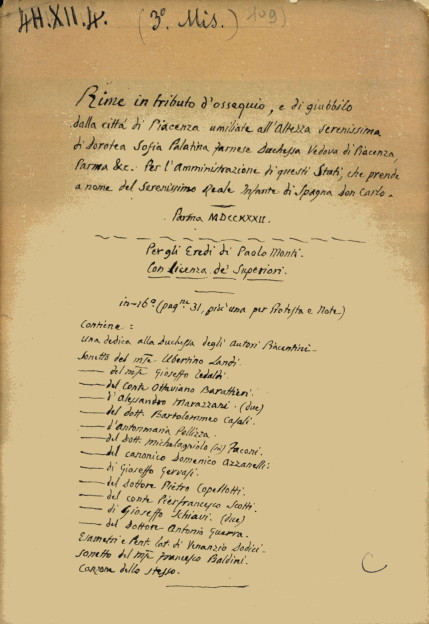 4H.XII.4. (3º. Mis.) 109)
Rime in tributo d'ossequio, e di giubbilo
dalla città di Piacenza umiliate all'Altezza Serenissima
di Dorotea Sofia Palatina Farnese Duchessa Vedova di Piacenza,
Parma &c. Per l'Amministrazione di questi Stati, che prende
a nome del Serenissimo Reale Infante di Spagna Don Carlo.
Parma MDCCXXXII.
Per gli Eredi di Paolo Monti.
Con licenza de' Superiori.
in-16º (pagne 31, più una per Protesta e Note)
Contiene :
Una dedica alla Duchessa degli Autori Piacentini.
Sonetto del mse Ubertino Landi.
— del mse Gioseffo
— del Conte Ottaviano Barattieri.
— d'Alessandro Marazzani. (due)
— del dott. Bartolommeo Casali.
— d'Antonmaria Pellizza.
— del Dott. Michelagniolo (sic) Faconi.
— del canonico Domenico Azzanelli.
— di Gioseffo Gervasi.
— del Dottore Pietro Copellotti.
— del conte Pierfrancesco Scotti.
— di Gioseffo Schiavi. (due)
— del Dottore Antonio Guerra.
Esametri e Pent. lat. di Venanzio Dodici.
Sonetto del mse Francesco Baldini.
Canzone dello stesso.